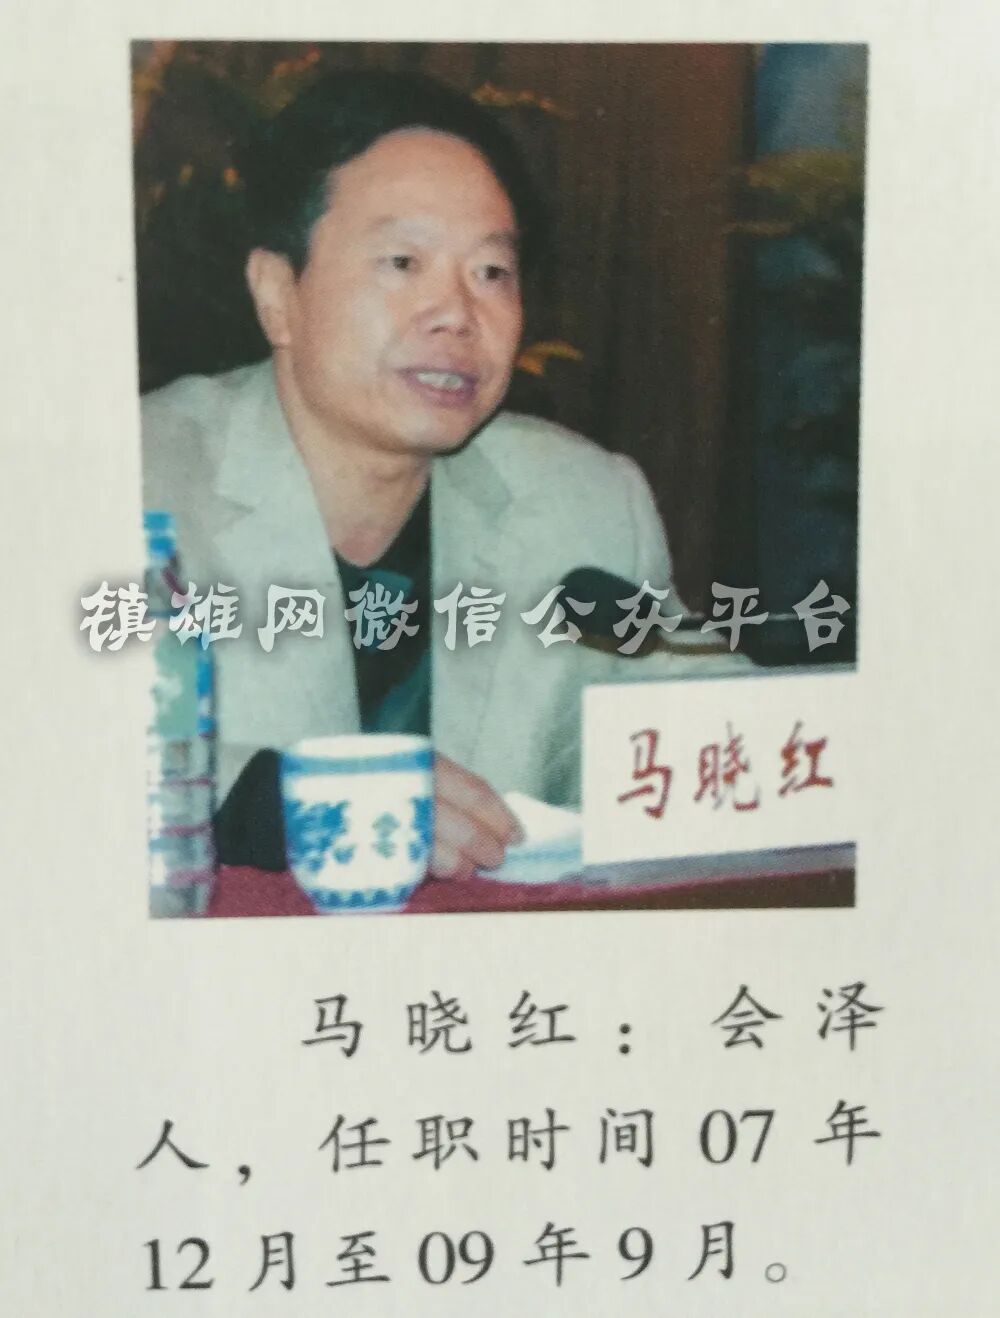 镇雄网微信公众平台
马晓红
马晓红：会泽
人，任职时间07年
12月至09年9月。